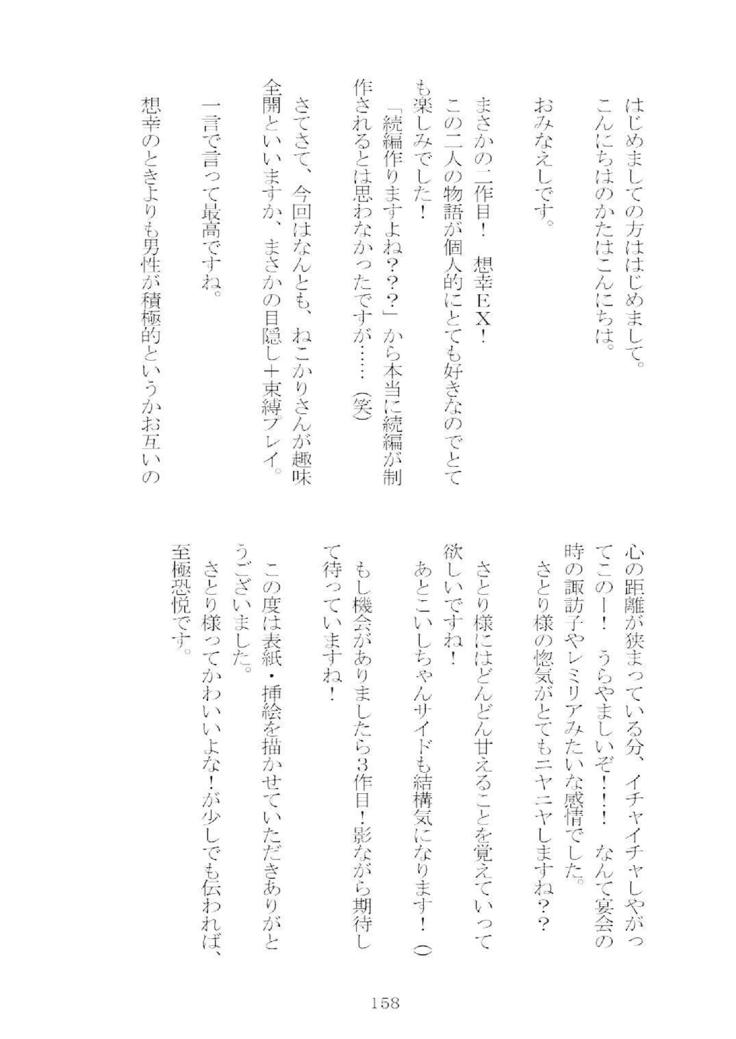 はじめましての方ははじめまして。
こんにちはのかたはこんにちは。
おみなえしです。
まさかの二作目！　想幸ＥＸ！
この二人の物語が個人的にとても好きなのでとて
も楽しみでした！
「続編作りますよね？？？」から本当に続編が制
作されるとは思わなかったですが……（笑）
さてさて、今回はなんとも、ねこかりさんが趣味
全開といいますか、まさかの目隠し＋束縛プレイ。
一言で言って最高ですね。
想幸のときよりも男性が積極的というかお互いの
心の距離が狭まっている分、イチャイチャしやがっ
てこのー！　うらやましいぞ！！！　なんて宴会の
時の諏訪子やレミリアみたいな感情でした。
さとり様の惚気がとてもニヤニヤしますね？？
さとり様にはどんどん甘えることを覚えていって
欲しいですね！
あとこいしちゃんサイドも結構気になります！（）
もし機会がありましたら３作目！影ながら期待し
て待っていますね！
この度は表紙・挿絵を描かせていただきありがと
うございました。
さとり様ってかわいいよな！が少しでも伝われば、
至極恐悦です。
158